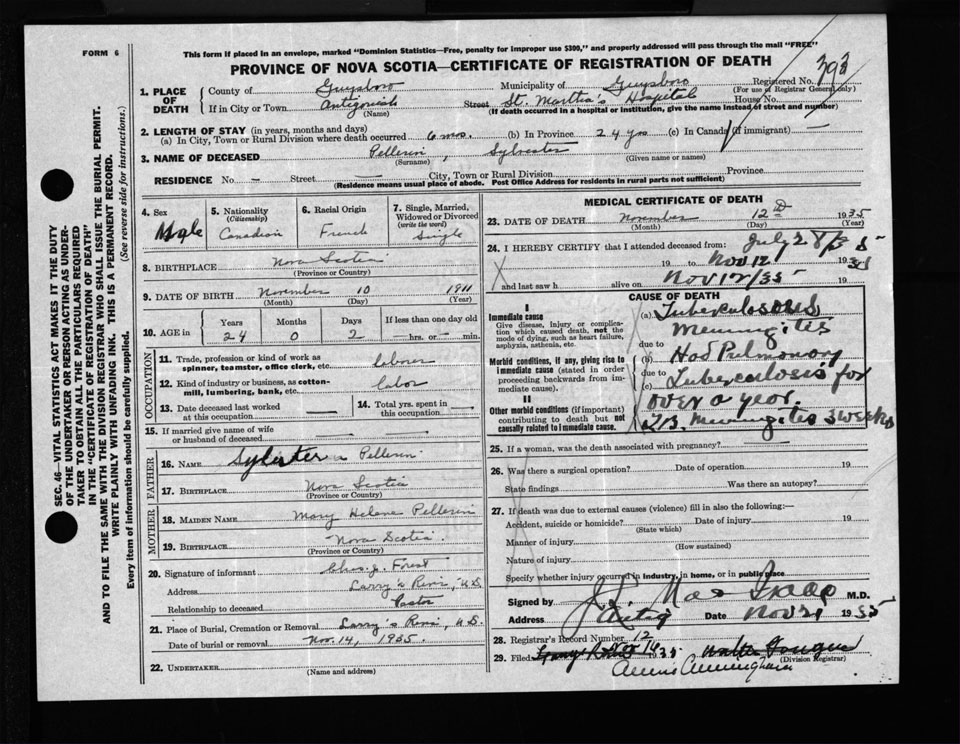 FORM 6
This form if placed in an envelope, marked "Dominion Statistics—Free, penalty for improper use $300," and properly addressed will pass through the mail "FREE"
PROVINCE OF NOVA SCOTIA—CERTIFICATE OF REGISTRATION OF DEATH
393
1. PLACE OF DEATH
County of Guysboro Municipality of Guysboro Registered No.
(For use of Registrar General only)
If in City or Town Antigonish Street St. Martha's Hospital House No.
(Name) (If death occurred in a hospital or institution, give the name instead of street and number)
2. LENGTH OF STAY (in years, months and days)
(a) In City, Town or Rural Division where death occurred 6 mos. (b) In Province 24 yrs (c) In Canada (if immigrant) —
3. NAME OF DECEASED Pellerin, Sylvester
(Surname) (Given name or names)
RESIDENCE No. — Street — City, Town or Rural Division Province
(Residence means usual place of abode. Post Office Address for residents in rural parts not sufficient)
4. Sex
Male
5. Nationality
(Citizenship)
Canadian
6. Racial Origin
French
7. Single, Married, Widowed or Divorced
(write the word)
Single
8. BIRTHPLACE Nova Scotia
(Province or Country)
9. DATE OF BIRTH November 10 1911
(Month) (Day) (Year)
10. AGE in
Years Months Days If less than one day old
24 0 2 hrs. or — min.
OCCUPATION
11. Trade, profession or kind of work as spinner, teamster, office clerk, etc. laborer
12. Kind of industry or business, as cotton-mill, lumbering, bank, etc. labor
13. Date deceased last worked at this occupation
14. Total yrs. spent in this occupation
15. If married give name of wife or husband of deceased
FATHER
16. NAME Sylvester Pellerin
17. BIRTHPLACE Nova Scotia
(Province or Country)
MOTHER
18. MAIDEN NAME Mary Helene Pellerin
19. BIRTHPLACE Nova Scotia
(Province or Country)
20. Signature of informant Chas. J. Forest
Address Larry's River, N.S.
Relationship to deceased Pastor
21. Place of Burial, Cremation or Removal Larry's River, N.S.
Date of burial or removal Nov. 14, 1935.
22. UNDERTAKER
(Name and address)
MEDICAL CERTIFICATE OF DEATH
23. DATE OF DEATH November 12 1935
(Month) (Day) (Year)
24. I HEREBY CERTIFY that I attended deceased from: July 28/35
19 to Nov 12 1935
and last saw h alive on Nov 12/35 19
I
Immediate cause
Give disease, injury or complication which caused death, not the mode of dying, such as heart failure, asphyxia, asthenia, etc.
Morbid conditions, if any, giving rise to immediate cause (stated in order proceeding backwards from immediate cause).
II
Other morbid conditions (if important) contributing to death but not causally related to immediate cause.
CAUSE OF DEATH
(a) Tuberculosus
Meningites
due to
(b) Had Pulmonary
due to
(c) Tuberculosis for
over a year.
TB. Meningites 3 weeks
25. If a woman, was the death associated with pregnancy?
26. Was there a surgical operation? Date of operation 19
State findings Was there an autopsy?
27. If death was due to external causes (violence) fill in also the following:—
Accident, suicide or homicide? Date of injury 19
(State which)
Manner of injury
(How sustained)
Nature of injury
Specify whether injury occurred in industry, in home, or in public place
Signed by M.D.
Address Antig Date Nov 21 1935
28. Registrar's Record Number 12
29. Filed 1935
(Division Registrar)
SEC. 46—VITAL STATISTICS ACT MAKES IT THE DUTY OF THE UNDERTAKER OR PERSON ACTING AS UNDERTAKER TO OBTAIN ALL THE PARTICULARS REQUIRED IN THE "CERTIFICATE OF REGISTRATION OF DEATH"
AND TO FILE THE SAME WITH THE DIVISION REGISTRAR WHO SHALL ISSUE THE BURIAL PERMIT.
WRITE PLAINLY WITH UNFADING INK. THIS IS A PERMANENT RECORD.
Every item of information should be carefully supplied. (See reverse side for instructions.)